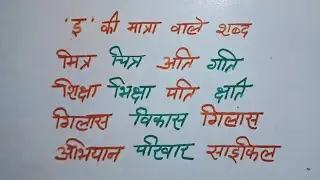 'इ' की मात्रा वाले शब्द
मित्र चित्र अति गति
शिक्षा भिक्षा पति क्षति
गिलास विकास गिलास
अभियान परिवार साइकिल